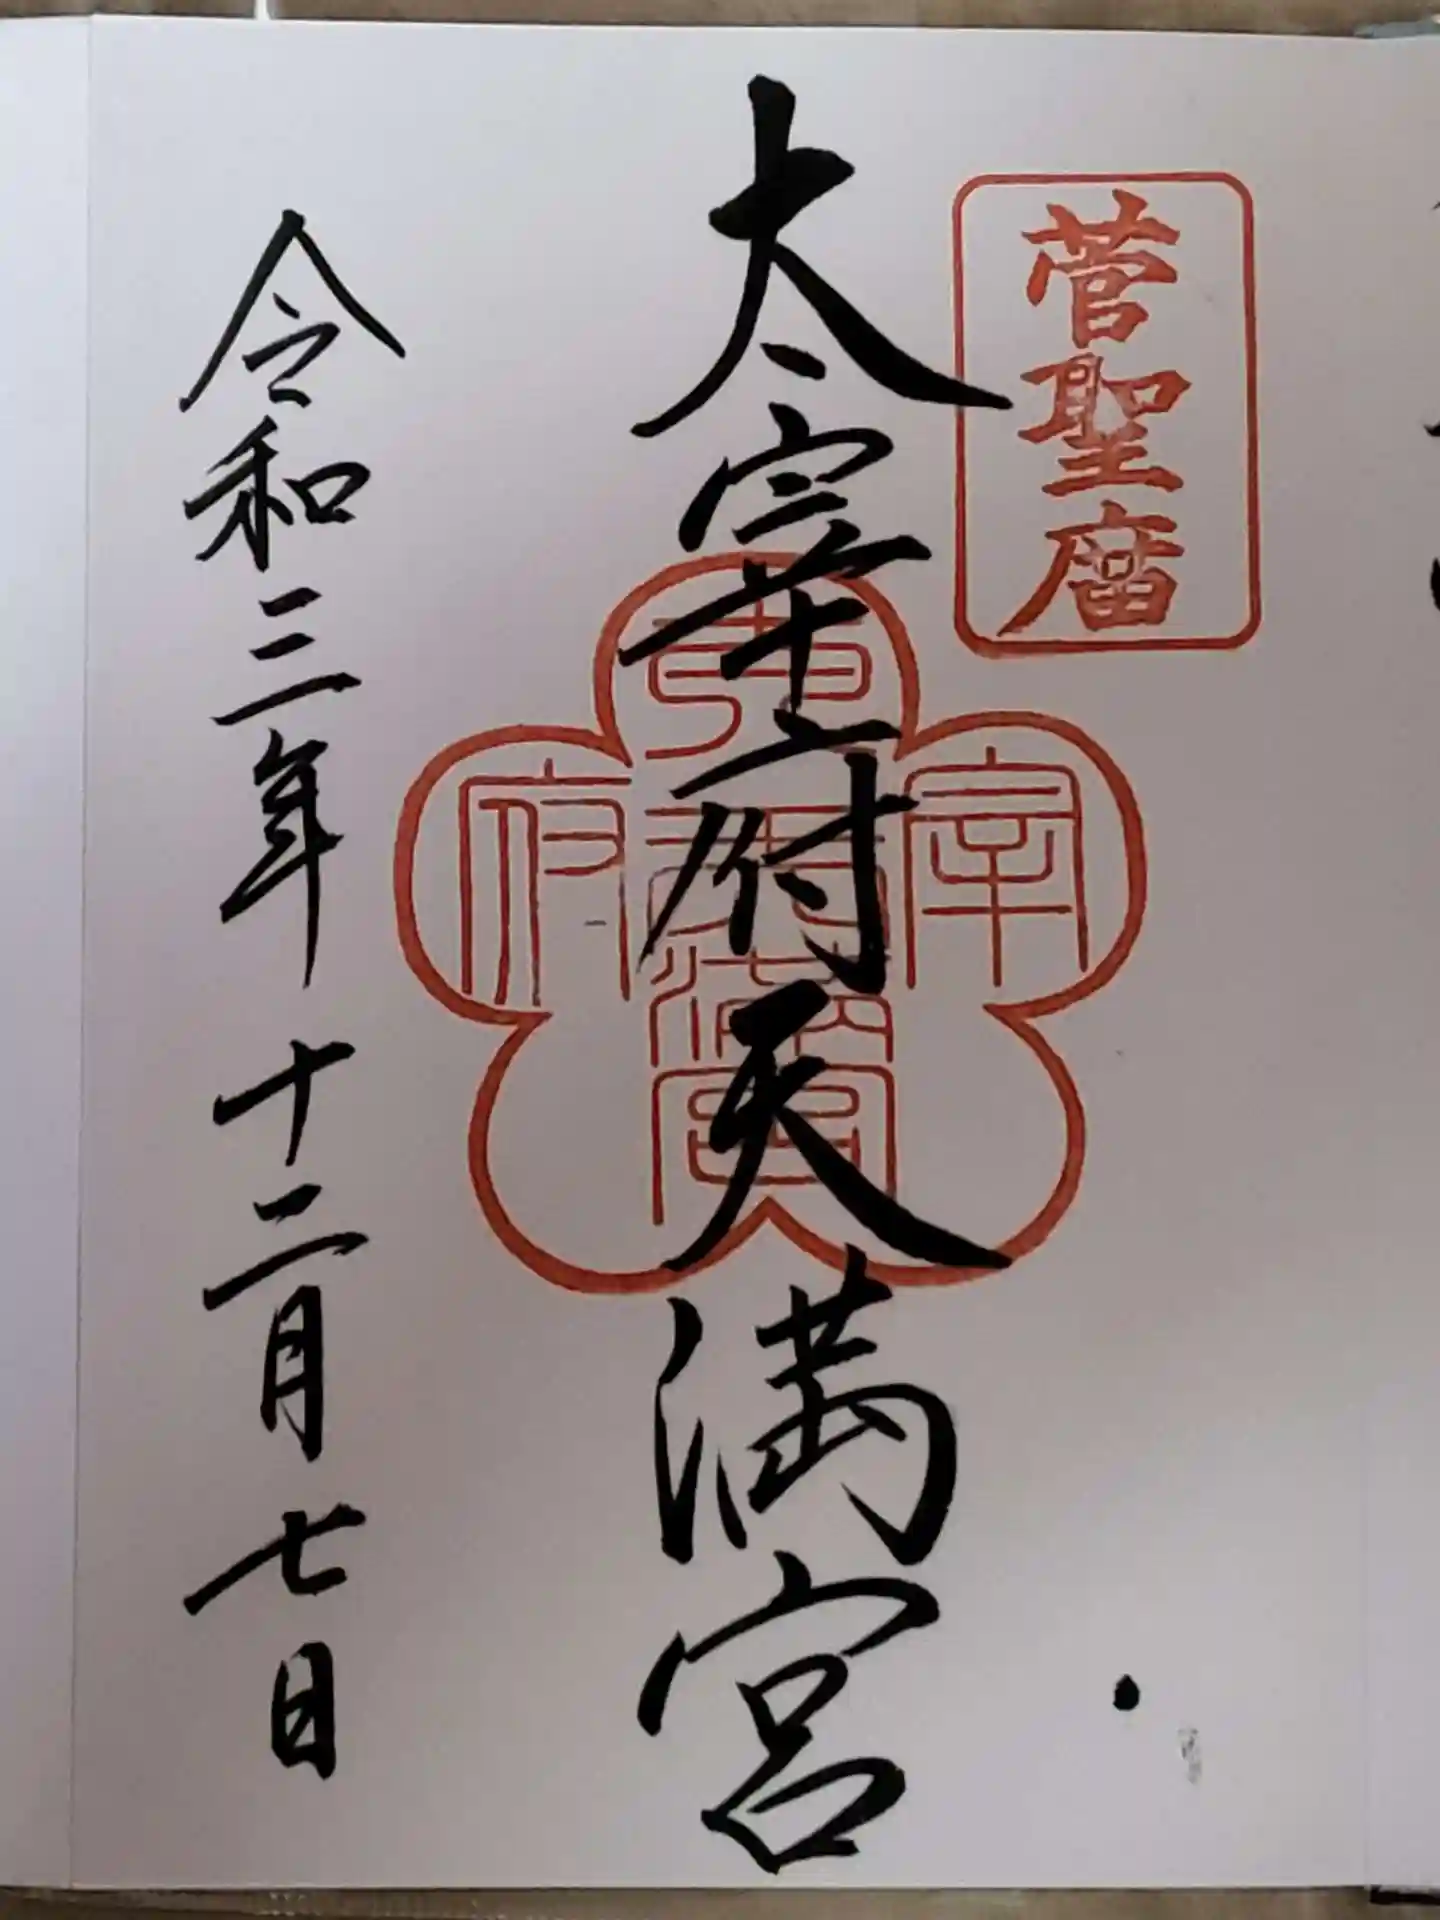 菅聖廟
太宰府天満宮
令和三年十二月七日
宰
府
満
宮